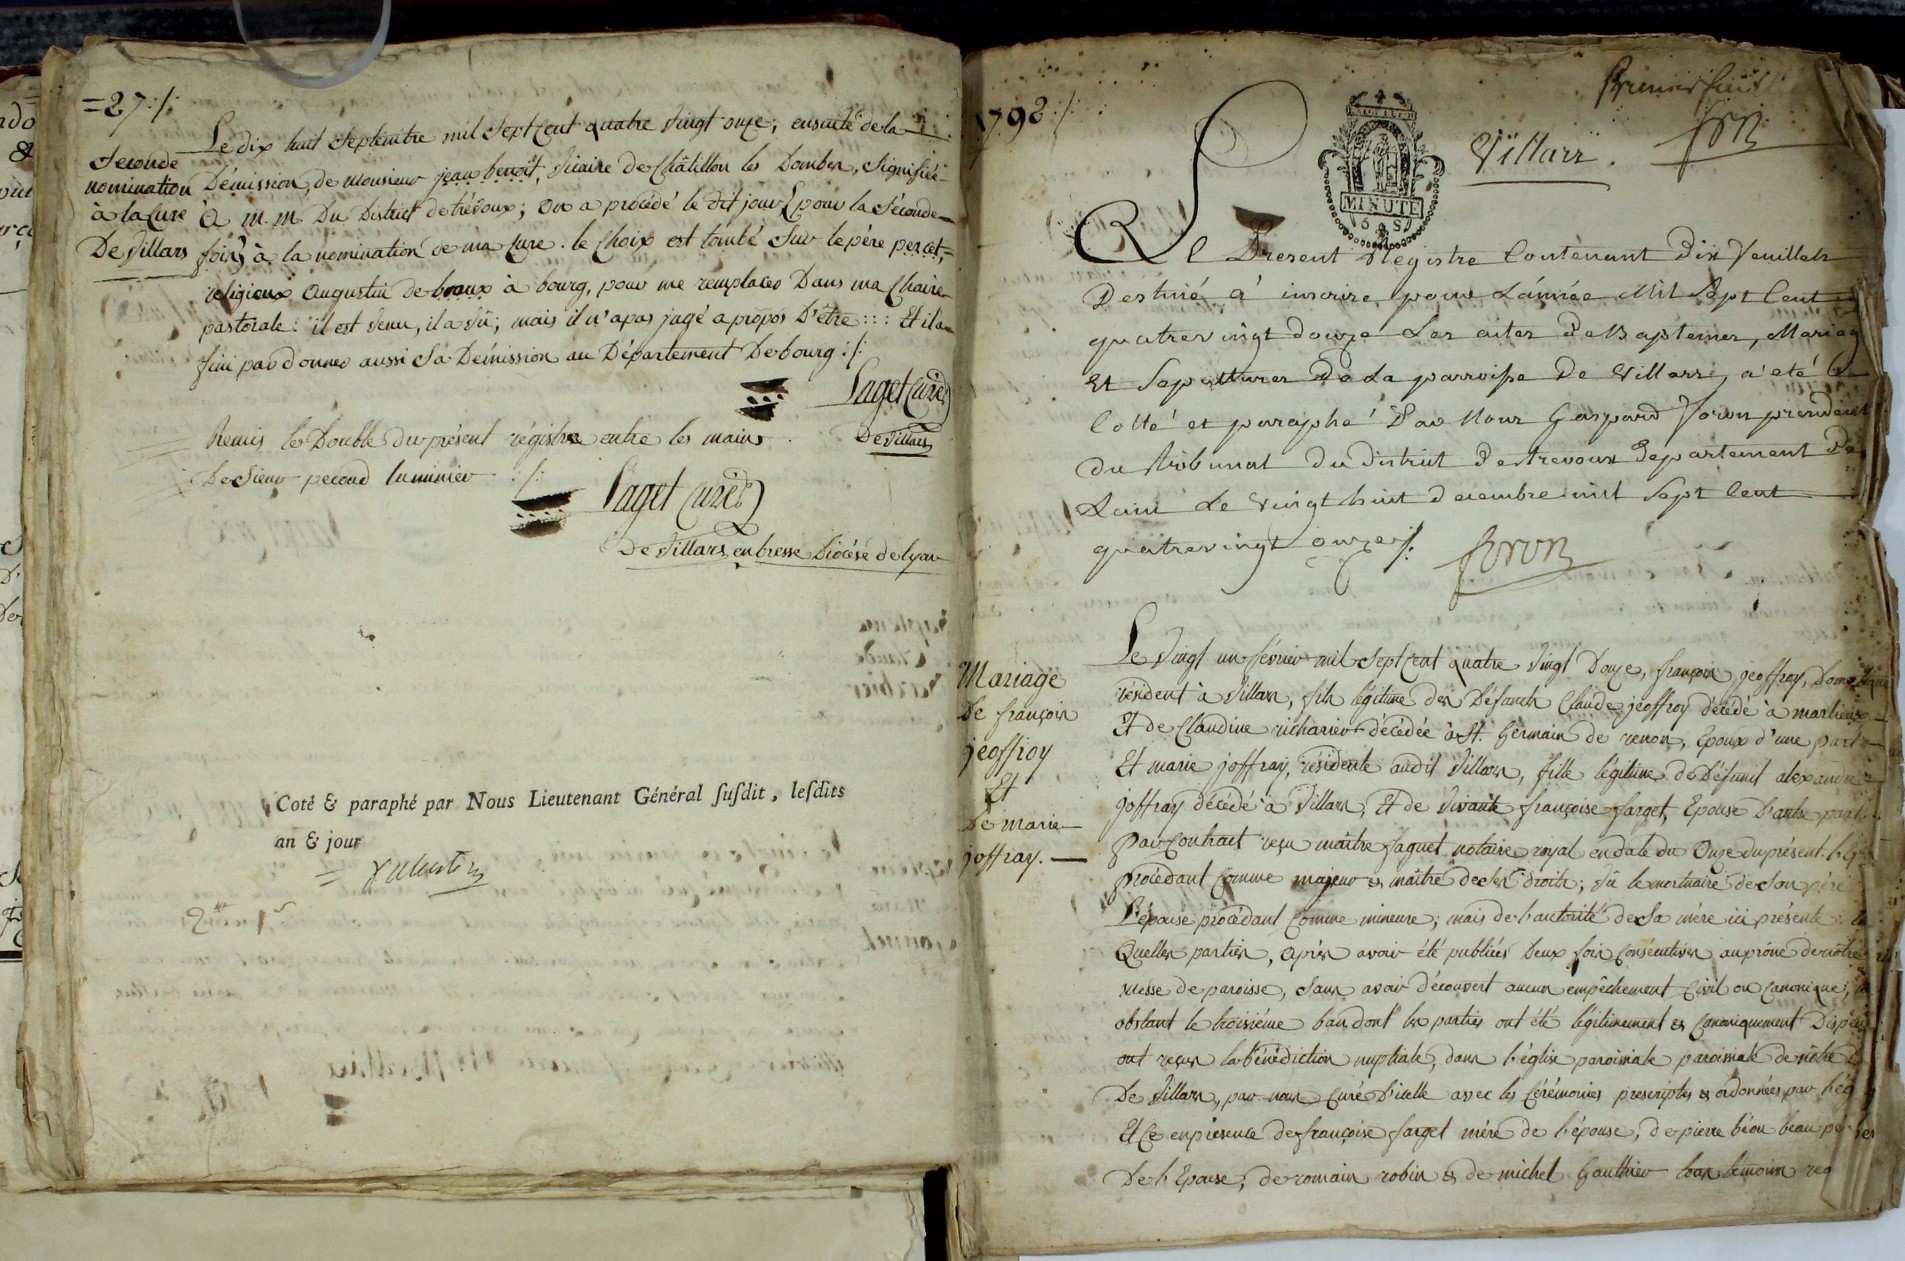 =27:/:
Le dix huit Septembre mil Sept Cent quatre vingt onze, ensuite de la
Seconde
nomination
à la Cure
De Villars
Démission, de monsieur jean benoît, vicaire de Châtillon les Dombes, Signifiée
à m. m. Du District de trévoux; on a procédé le dit jour (pour la Séconde
fois) à la nomination de ma Cure. le Choix est tombé Sur le père percet,
religieux augustin de broux à bourg, pour me remplacer Dans ma Chaire
pastorale: il est venu, il a vû; mais il n'a pas jugé a propos D'être ::: Et il a
fini par donner aussi Sa Démission au Département De bourg :/:
Saget Curé
De Villars
Remis le Double du présent régistre entre les mains
De Sieur pecoud luminier :/:
Saget Curé
De Villars en bresse Diocése de lyon
Coté & paraphé par Nous Lieutenant Général susdit, lesdits
an & jour
1792:/:
Premier feuill
Villars.
MINUTE
Le Present Registre Contenant Dix feuillets
Destiné a inscrire pour L'année Mil Sept Cent
quatre vingt douze Les actes De Baptemes, Mariag
Et Sepultures De La parroisse De Villars, a été
Cotté et paraphé Par Nous Gaspard Voron president
du tribunal du District De trevoux Departement De
Lain Le vingt huit decembre mil Sept Cent
quatre vingt onze /:
Voron
Mariage
De françois
jeoffroy
Et
De marie
joffray.
Le vingt un février mil Sept Cent quatre vingt Douze, françois jeoffroy, Domestique
résident à Villars, fils légitime des Défunts Claude jeoffroy décédé à marlieux
Et de Claudine richarier décédée à St. Germain de renon, Epoux d'une part
Et marie joffray, résidente audit Villars, fille légitime de Défunt alexandre
joffray décédé à Villars, Et de vivante françoise farget, Epouse D'autre part
par Contract reçu maître jaquet notaire royal en date du Onze du présent. l'Ep
procédant Comme majeur & maître de Ses droits, vû le mortuaire de Son père
L'épouse procédant Comme mineure; mais de l'autorité de Sa mère ici présente: les
Quelles parties, après avoir été publiées Deux fois Consécutives au prône de nôtre
messe de paroisse, Sans avoir découvert aucun empêchement Civil ou Canonique,
obstant le troisième ban dont les parties ont été légitimement & Canoniquement Dispen
ont reçus la bénédiction nuptiale, dans l'église paroissiale paroissiale de nôtre D
De Villars, par nous Curé D'icelle avec les Cérémonies prescriptes & ordonnées par l'ég
Et Ce en présence de françoise farget mère de l'épouse, de pierre bion beau père
De l'Epouse, de romain robin & de michel Gauthier tous témoins req